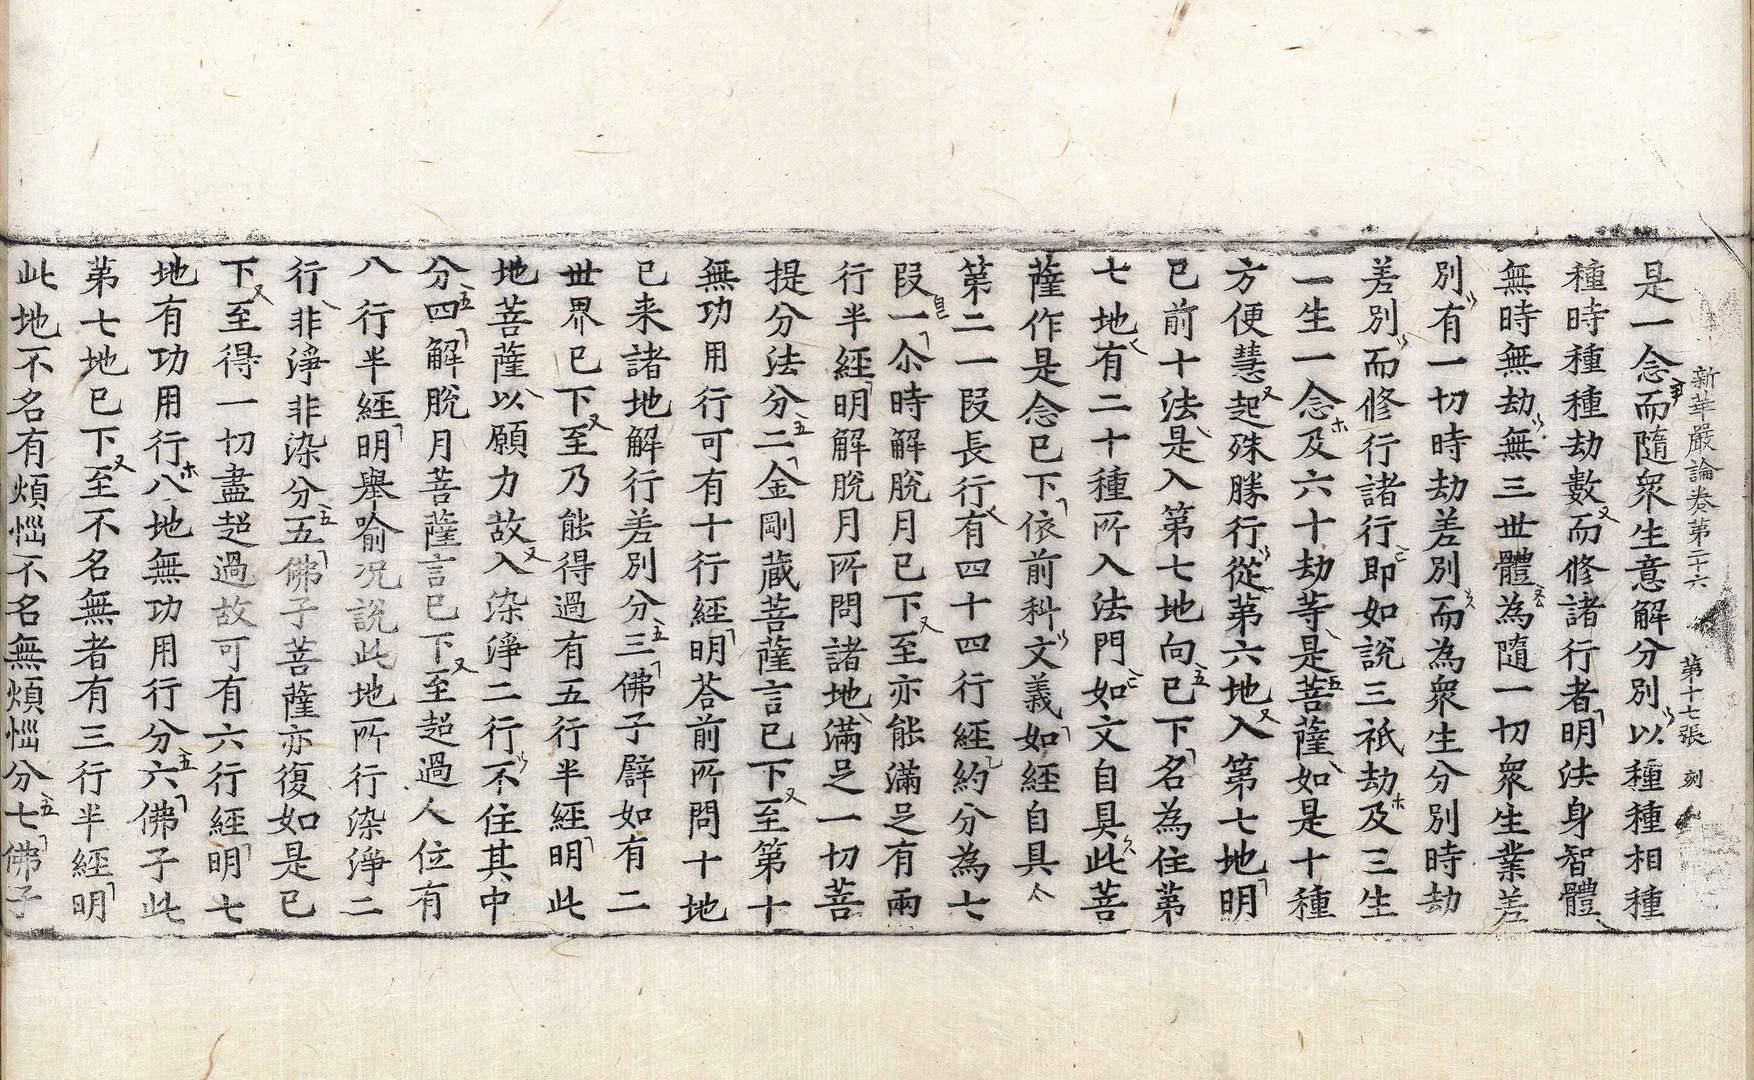 新華嚴論卷第二十六 第十七張 刻
是一念而隨衆生意解分別以種種相種
種時種種劫數而修諸行者明法身智體
無時無劫無三世體為隨一切衆生業差
別有一切時劫差別而為衆生分別時劫
差別而修行諸行即如說三祇劫及三生
一生一念及六十劫等是菩薩如是十種
方便慧起殊勝行從第六地入第七地明
已前十法是入第七地向已下名為住第
七地有二十種所入法門如文自具此菩
薩作是念已下依前科文義如經自具
第二一段長行有四十四行經約分為七
段一尒時解脫月已下至亦能滿足有兩
行半經明解脫月所問諸地滿足一切菩
提分法分二金剛蔵菩薩言已下至第十
無功用行可有十行經明荅前所問十地
已来諸地解行差別分三佛子譬如有二
世界已下至乃能得過有五行半經明此
地菩薩以願力故入染淨二行不住其中
分四解脫月菩薩言已下至超過人位有
八行半經明舉喻况說此地所行染淨二
行非淨非染分五佛子菩薩亦復如是已
下至得一切盡超過故可有六行經明七
地有功用行八地無功用行分六佛子此
第七地已下至不名無者有三行半經明
此地不名有煩惱不名無煩惱分七佛子